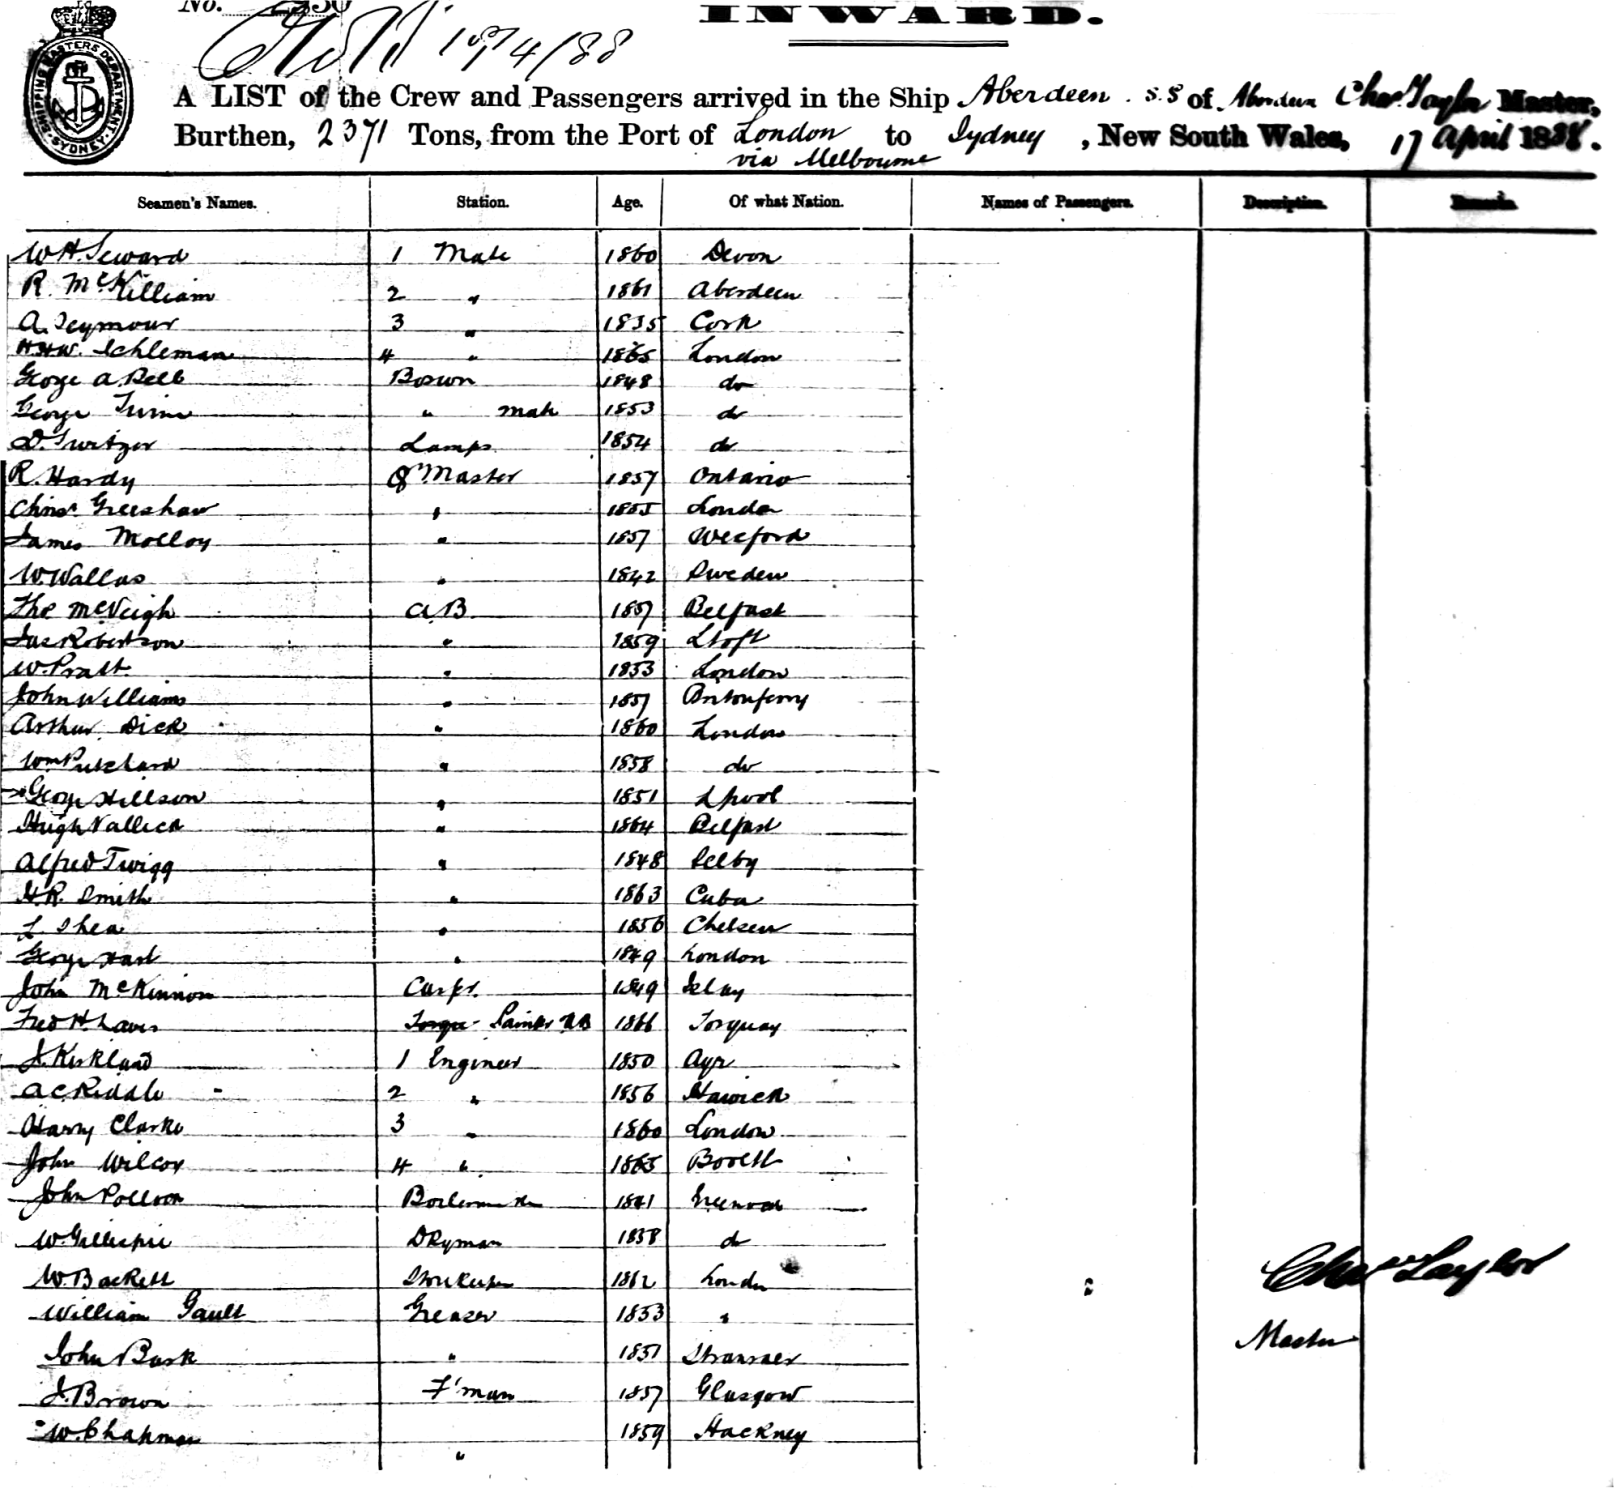 No.
INWARD.
17/4/88
SHIPPING MASTERS DEPARTMENT SYDNEY
A LIST of the Crew and Passengers arrived in the Ship Aberdeen S.S of Aberdeen Chas Taylor Master,
Burthen, 2371 Tons, from the Port of London to Sydney, New South Wales, 17 April 1888.
via Melbourne
Seamen's Names. Station. Age. Of what Nation. Names of Passengers. Description. Remarks.
W H Seward 1 Mate 1860 Devon
R. McKilliam 2 " 1861 Aberdeen
A. Seymour 3 " 1835 Cork
W. Schleman 4 " 1865 London
George A. Bell Bosun 1848 do
George " mate 1853 do
D. Switzer Lamps 1854 do
R. Hardy Qr Master 1857 Ontario
Chrisr. Greeshaw " 1855 London
James Molloy " 1857 Wexford
W. Wallas " 1842 Sweden
Thos McVeigh A.B 1857 Belfast
Jas Robertson " 1859 Ltoft
W. Pratt " 1853 London
John Williams " 1857
Arthur Dick " 1860 London
Wm Pritchard " 1858 do
George Hillson " 1851 Lpool
Hugh Vallick " 1864 Belfast
Alfred Twigg " 1848 Selby
H.R. Smith " 1863 Cuba
Shea " 1856 Chelsea
George Hart " 1849 London
John McKinnon Carpr. 1849 Islay
Fred H. Laver Painter AB 1866 Torquay
J. Kirkland 1 Engineer 1850 Ayr
A C Riddle 2 " 1856 Hawick
Harry Clarke 3 " 1860 London
John Wilcox 4 " 1865
John Pollock 1841 Greenock
W. Gillespie Dkyman 1838 do
W. Backett Storekeeper 1862 London
William Gault Greaser 1853 "
John Bask " 1851 Stranraer
J. Brown F'man 1857 Glasgow
W. Chapman " 1859 Hackney
Chas Taylor
Master